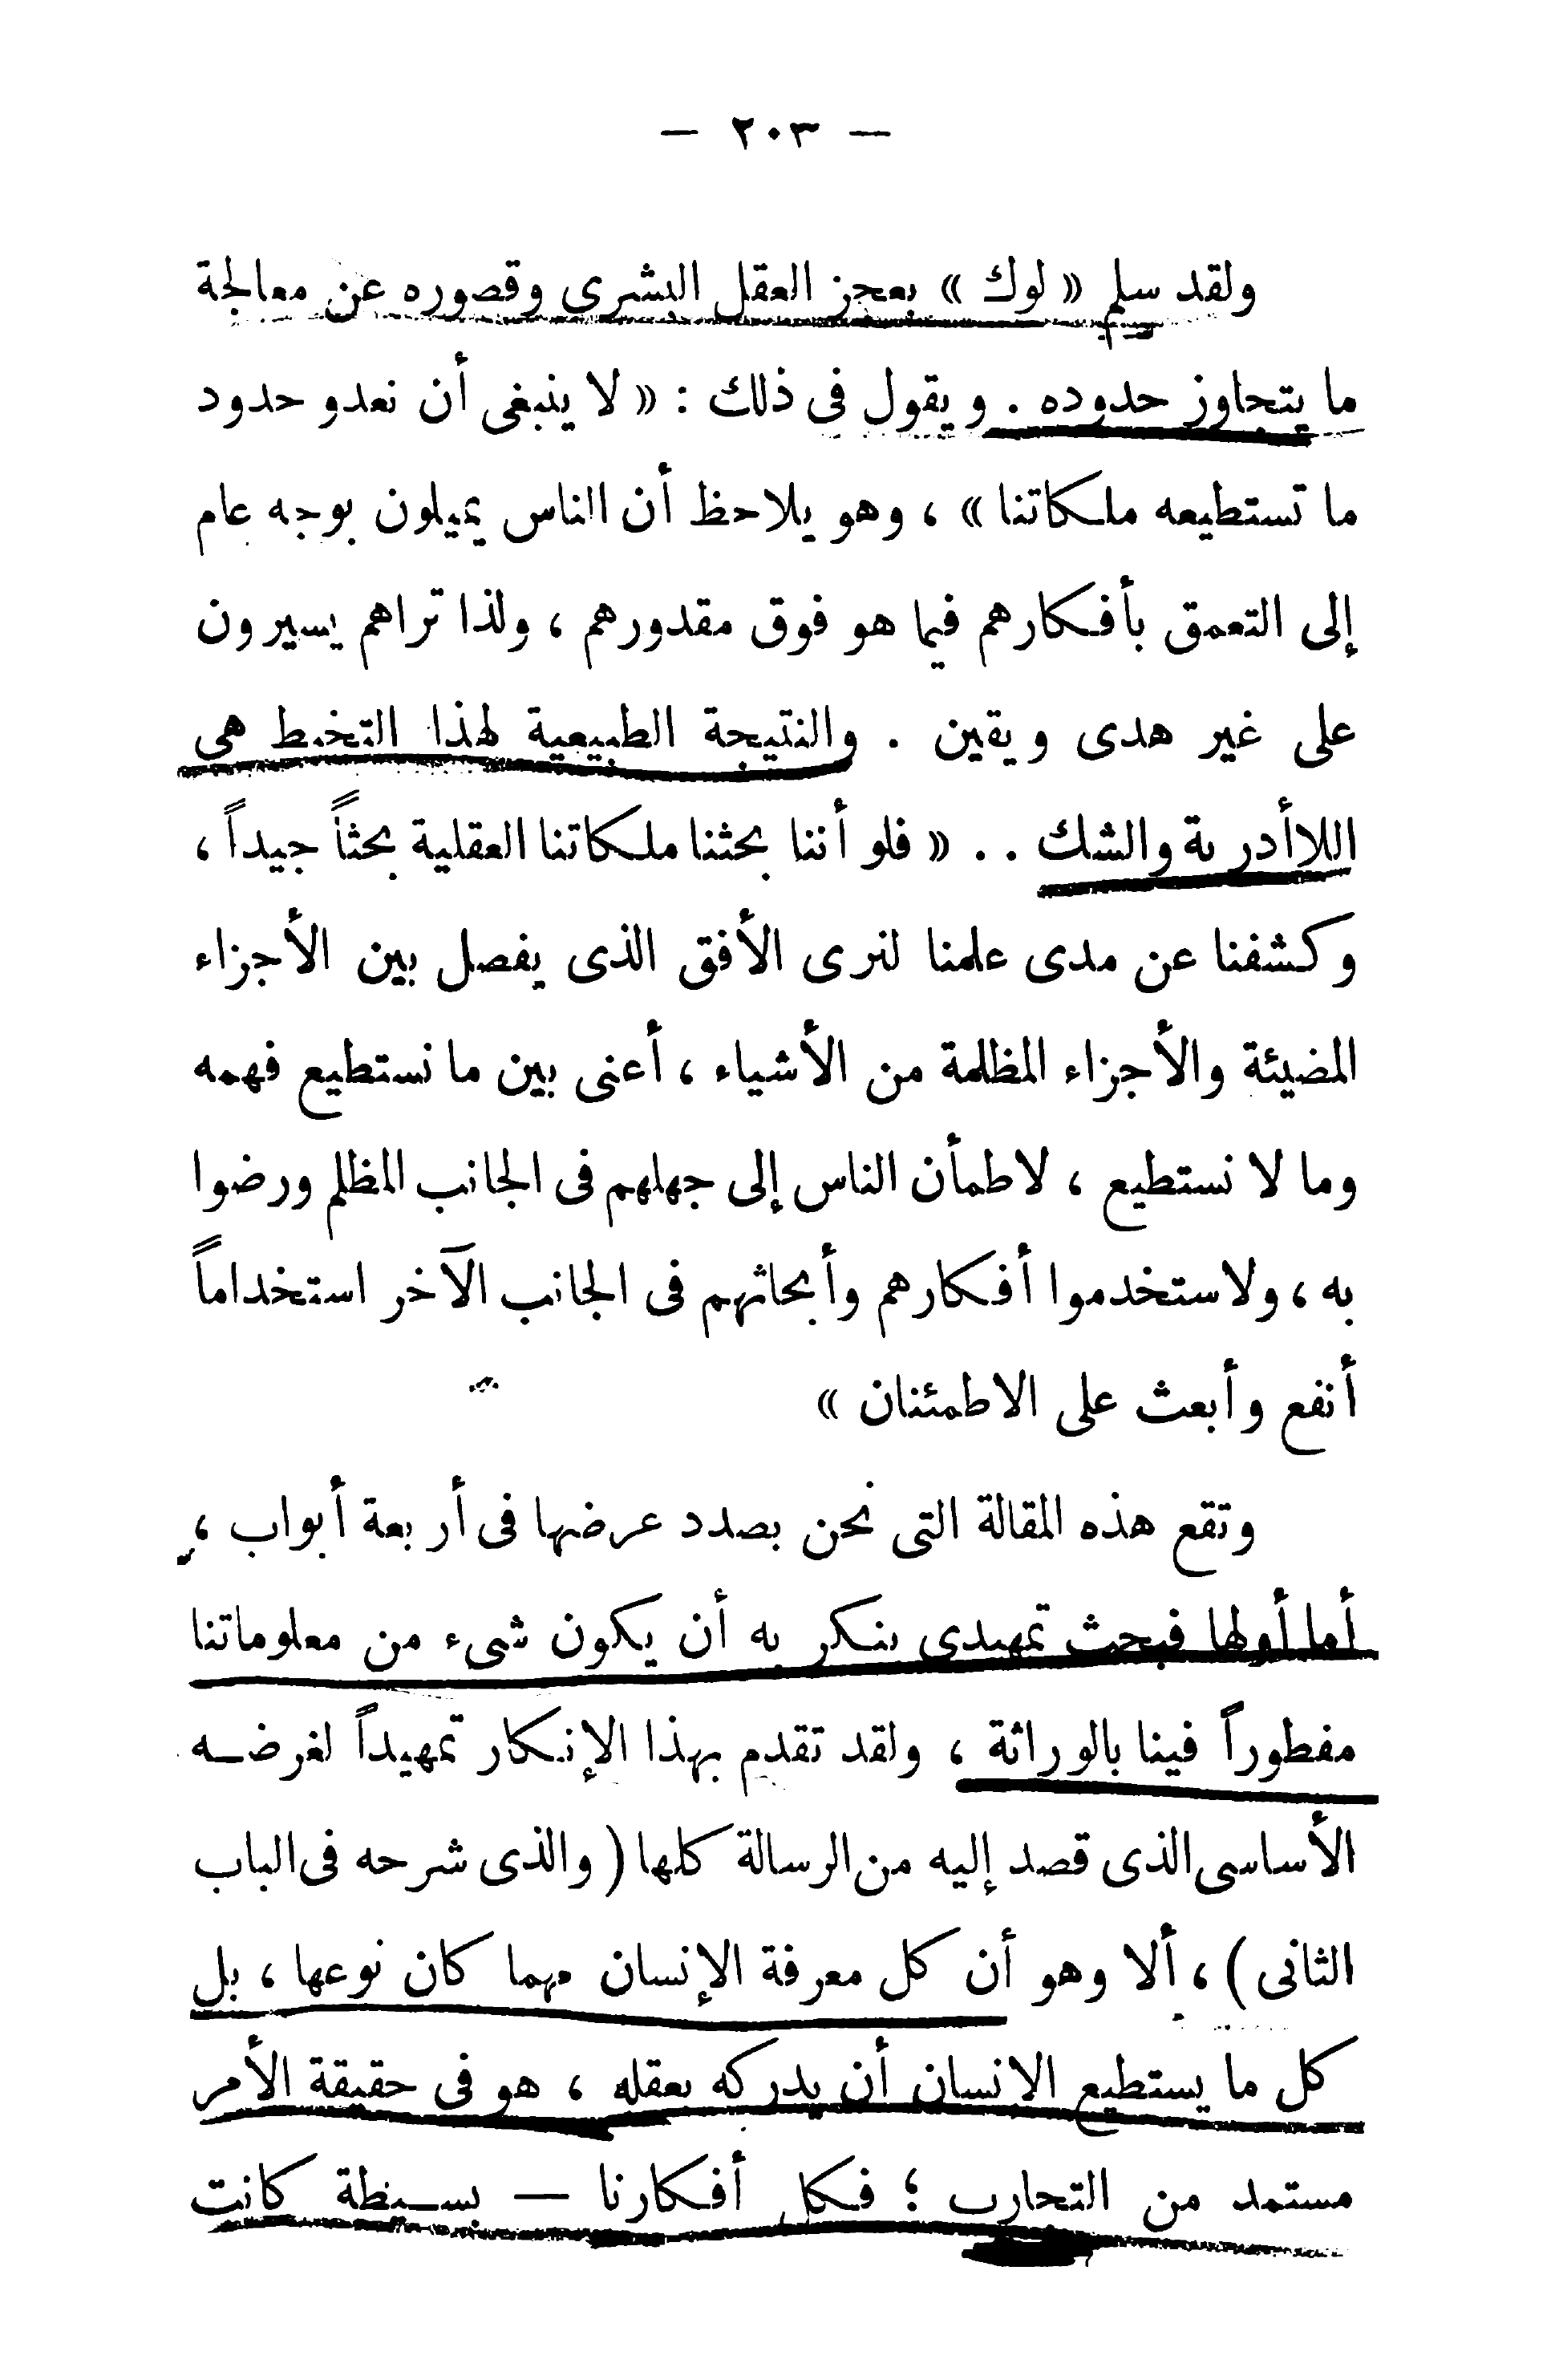 — ٢٠٣ —
ولقد سلم « لوك » بعجز العقل البشرى وقصوره عن معالجة
ما يتجاوز حدوده . ويقول فى ذلك : « لا ينبغى أن نعدو حدود
ما تستطيعه ملكاتنا » ، وهو يلاحظ أن الناس يميلون بوجه عام
إلى التعمق بأفكارهم فيما هو فوق مقدورهم ، ولذا تراهم يسيرون
على غير هدى ويقين . والنتيجة الطبيعية لهذا التخبط هى
اللاأدرية والشك . . « فلو أننا بحثنا ملكاتنا العقلية بحثاً جيداً ،
وكشفنا عن مدى علمنا لنرى الأفق الذى يفصل بين الأجزاء
المضيئة والأجزاء المظلمة من الأشياء ، أعنى بين ما نستطيع فهمه
وما لا نستطيع ، لاطمأن الناس إلى جهلهم فى الجانب المظلم ورضوا
به ، ولاستخدموا أفكارهم وأبحاثهم فى الجانب الآخر استخداماً
أنفع وأبعث على الاطمئنان »
وتقع هذه المقالة التى نحن بصدد عرضها فى أربعة أبواب ،
أما أولها فبحث تمهيدى ينكر به أن يكون شىء من معلوماتنا
مفطوراً فينا بالوراثة ، ولقد تقدم بهذا الإنكار تمهيداً لغرضه
الأساسى الذى قصد إليه من الرسالة كلها ( والذى شرحه فى الباب
الثانى ) ، ألا وهو أن كل معرفة الإنسان مهما كان نوعها ، بل
كل ما يستطيع الإنسان أن يدركه بعقله ، هو فى حقيقة الأمر
مستمد من التجارب ؛ فكل أفكارنا — بسيطة كانت